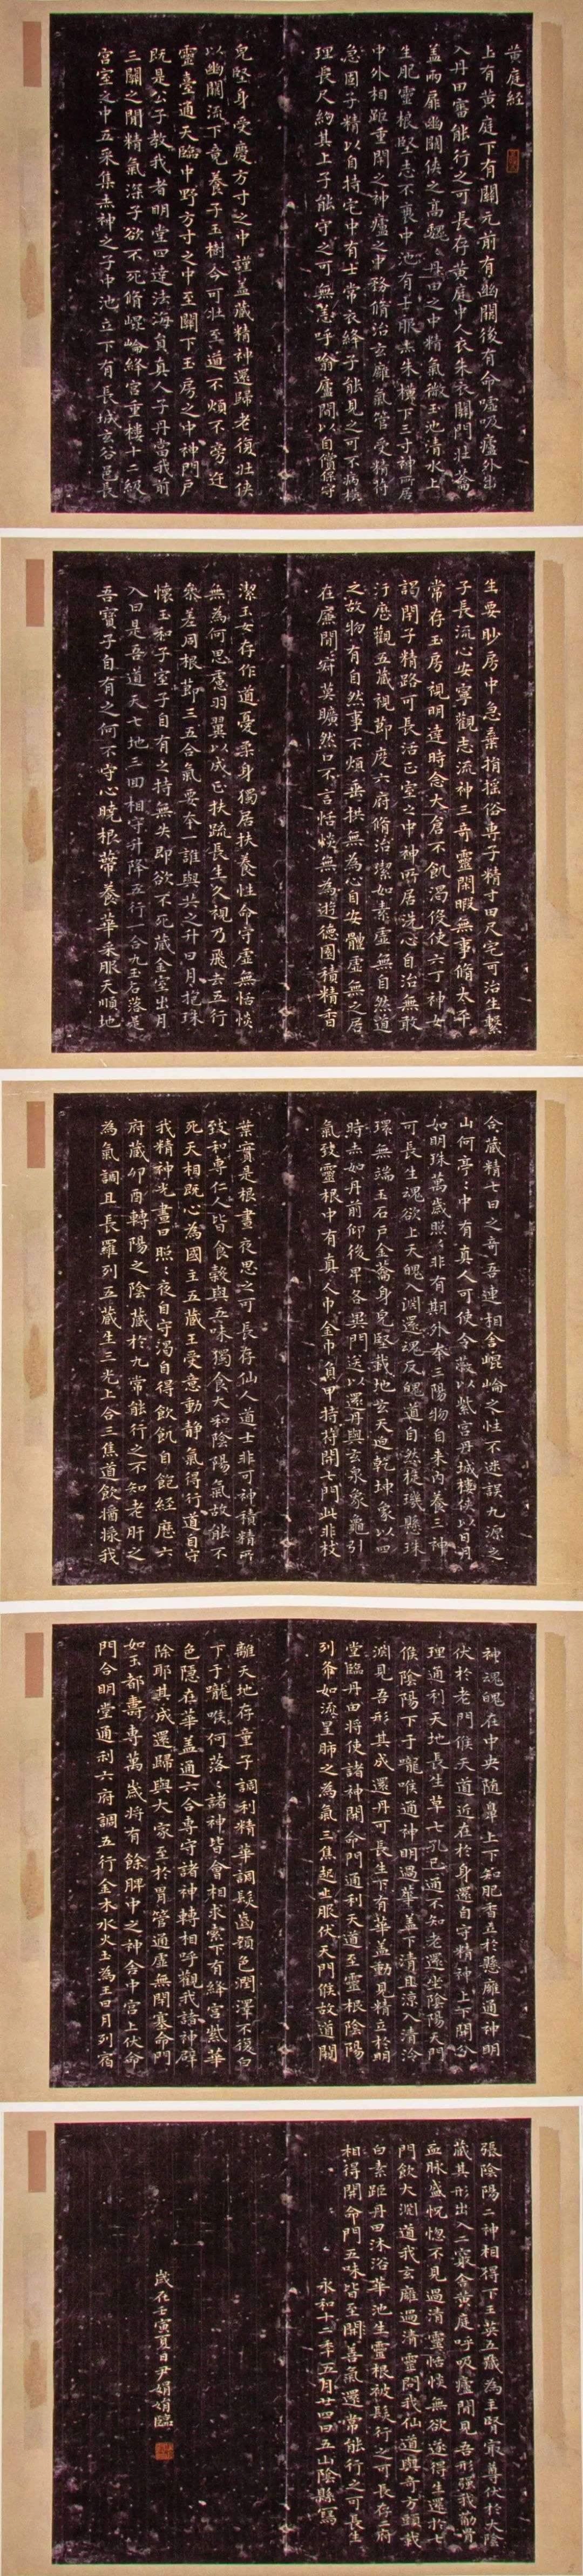 黄庭經
上有黄庭下有關元前有幽闕後有命噓吸廬外出
入丹田審能行之可長存黄庭中人衣朱衣關門壯籥
蓋兩扉幽闕俠之高魏〻丹田之中精氣微玉池清水上
生肥靈根堅志不衰中池有士服赤朱橫下三寸神所居
中外相距重閉之神廬之中務脩治玄廱氣管受精符
急固子精以自持宅中有士常衣絳子能見之可不病橫
理長尺約其上子能守之可無恙呼噏廬間以自償保守
皃堅身受慶方寸之中謹蓋藏精神還歸老復壯俠
以幽闕流下竟養子玉樹令可壯至道不煩不旁迕
靈臺通天臨中野方寸之中至關下玉房之中神門戶
既是公子教我者明堂四達法海員真人子丹當我前
三關之間精氣深子欲不死脩崐崘絳宮重樓十二級
宮室之中五采集赤神之子中池立下有長城玄谷邑長
生要眇房中急棄捐搖俗專子精寸田尺宅可治生繫
子長流心安寧觀志流神三奇靈閑暇無事脩太平
常存玉房視明達時念大倉不飢渴役使六丁神女
謁閉子精路可長活正室之中神所居洗心自治無敢
汙歷觀五藏視節度六府脩治潔如素虛無自然道
之故物有自然事不煩垂拱無為心自安體虛無之居
在廉間寂莫曠然口不言恬惔無為遊德園積精香
潔玉女存作道憂柔身獨居扶養性命守虛無恬惔
無為何思慮羽翼以成正扶疏長生久視乃飛去五行
參差同根節三五合氣要本一誰與共之升日月抱珠
懷玉和子室子自有之持無失即欲不死藏金室出月
入日是吾道天七地三回相守升降五行一合九玉石落落是
吾寶子自有之何不守心曉根蔕養華采服天順地
合藏精七日之奇吾連相合崐崘之性不迷誤九源之
山何亭〻中有真人可使令蔽以紫宮丹城樓俠以日月
如明珠萬歲照〻非有期外本三陽物自來內養三神
可長生魂欲上天魄入淵還魂反魄道自然旋璣懸珠
環無端玉石戶金籥身皃堅載地玄天迫乾坤象以四
時赤如丹前仰後卑各異門送以還丹與玄泉象龜引
氣致靈根中有真人巾金巾負甲持符開七門此非枝
葉實是根晝夜思之可長存仙人道士非可神積精所
致和專仁人皆食穀與五味獨食大和陰陽氣故能不
死天相既心為國主五藏王受意動靜氣得行道自守
我精神光晝日照〻夜自守渴自得飲飢自飽經歷六
府藏卯酉轉陽之陰藏於九常能行之不知老肝之
為氣調且長羅列五藏生三光上合三焦道飲醬採我
神魂魄在中央隨鼻上下知肥香立於懸廱通神明
伏於老門候天道近在於身還自守精神上下開分
理通利天地長生草七孔已通不知老還坐陰陽天門
候陰陽下于嚨喉通神明過華蓋下清且涼入清泠
淵見吾形其成還丹可長生下有華蓋動見精立於明
堂臨丹田將使諸神開命門通利天道至靈根陰陽
列布如流星肺之為氣三焦起上服伏天門候故道闚
離天地存童子調利精華調髮齒顏色潤澤不復白
下于嚨喉何落〻諸神皆會相求索下有絳宮紫華
色隱在華蓋通六合專守諸神轉相呼觀我諸神辟
除耶其成還歸與大家至於胃管通虛無閉塞命門
如玉都壽專萬歲將有餘脾中之神舍中宮上伏命
門合明堂通利六府調五行金木水火土為王日月列宿
張陰陽二神相得下玉英五藏為主腎最尊伏於大陰
藏其形出入二竅舍黄庭呼吸廬間見吾形強我筋骨
血脉盛怳惚不見過清靈恬惔無欲遂得生還於七
門飲大淵道我玄廱過清靈問我仙道與奇方頭載
白素距丹田沐浴華池生靈根被髮行之可長存二府
相得開命門五味皆至開善氣還常能行之可長生
永和十二年五月廿四日五山陰縣寫
歲在壬寅夏日尹娟娟臨